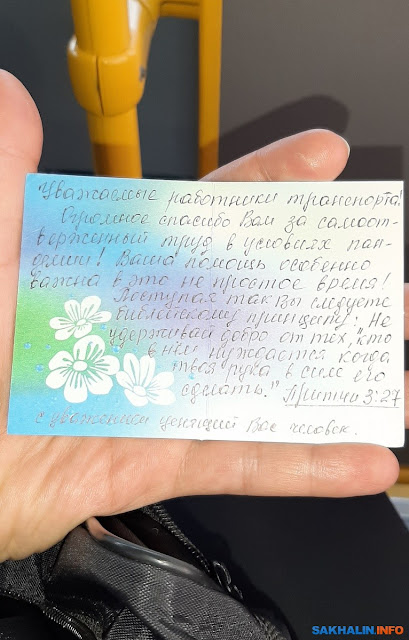 Уважаемые работники транспорта!
Огромное спасибо Вам за самоот-
верженный труд в условиях пан-
демии! Ваша помощь особенно
важна в это не простое время!
Поступая так Вы следуете
библейскому принципу: "Не
удерживай добро от тех, кто
в нём нуждается когда
твоя рука в силе его
сделать." Притчи 3:27
с уважением ценящий Вас человек.
SAKHALIN.INFO